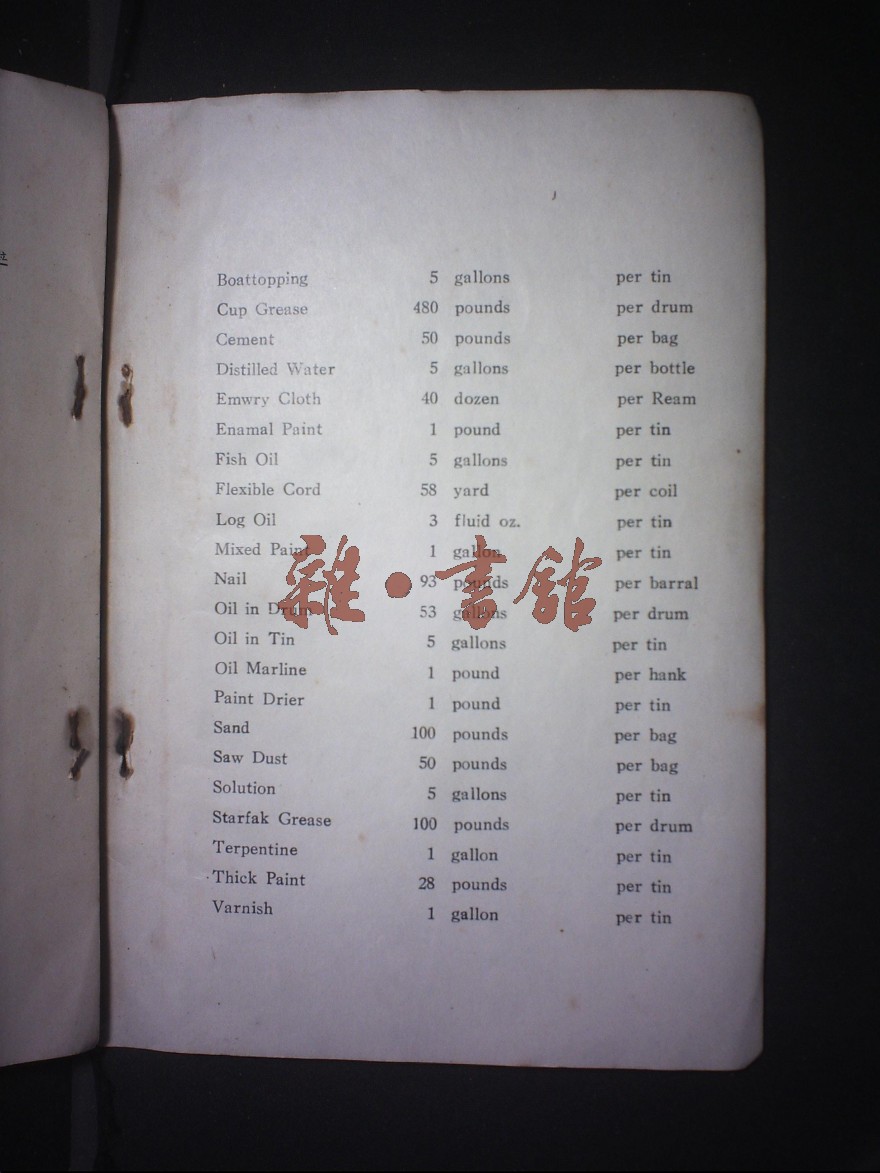 Boattopping 5 gallons per tin
Cup Grease 480 pounds per drum
Cement 50 pounds per bag
Distilled Water 5 gallons per bottle
Emwry Cloth 40 dozen per Ream
Enamal Paint 1 pound per tin
Fish Oil 5 gallons per tin
Flexible Cord 58 yard per coil
Log Oil 3 fluid oz. per tin
Mixed Paint 1 gallon per tin
Nail 93 pounds per barral
Oil in Drum 53 gallons per drum
Oil in Tin 5 gallons per tin
Oil Marline 1 pound per hank
Paint Drier 1 pound per tin
Sand 100 pounds per bag
Saw Dust 50 pounds per bag
Solution 5 gallons per tin
Starfak Grease 100 pounds per drum
Terpentine 1 gallon per tin
Thick Paint 28 pounds per tin
Varnish 1 gallon per tin
雜·書館